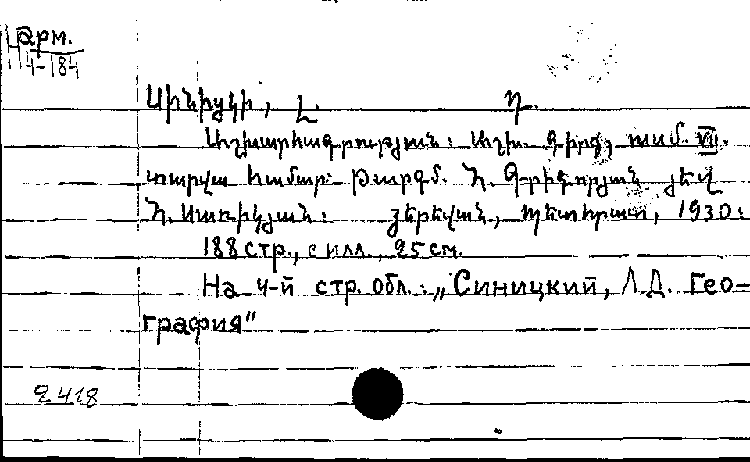 арм.
4-184
Սինիցկի, Լ. Դ.
Աշխարհագրություն: Աշխ. գիրք, ուսմ. VII.
տարվա համար: Թարգմ. Հ. Գրիգորյան յեվ
Հ. Սառիկյան: Յերեվան, պետհրատ, 1930:
188 стр., с илл., 25 см.
На 4-й стр. обл.: „Синицкий, Л.Д. Гео-
графия"
2418